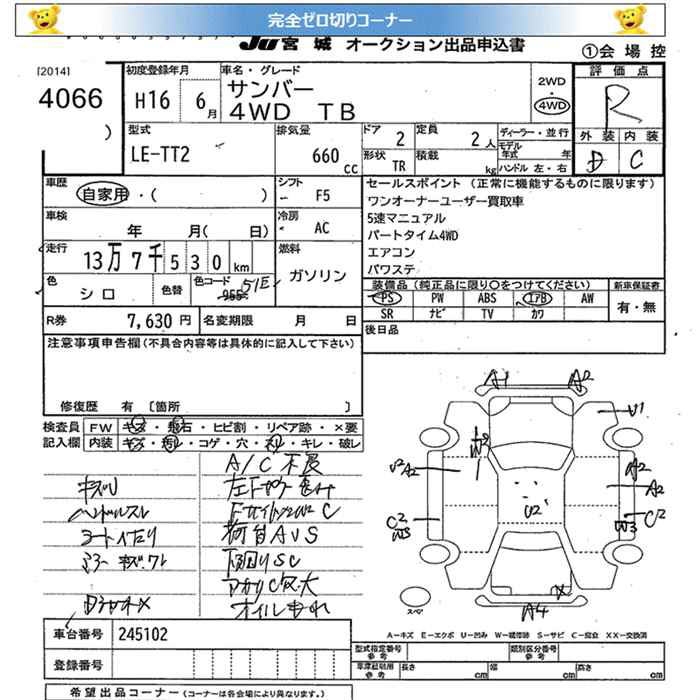 完全ゼロ切りコーナー
JU宮城 オークション出品申込書
①会場控
[2014]
4066
)
初度登録年月
H16 6月
車名・グレード
サンバー
4WD TB
2WD
・
4WD
評価点
R
外装 内装
D C
型式
LE-TT2
排気量
660 cc
ドア 2
定員 2人
形状 TR
積載 kg
ディーラー・並行
モデル年式 年
ハンドル 左・右
車歴
自家用・( )
シフト
F5
車検
年 月( 日)
冷房
AC
走行
13万7千530km
燃料
ガソリン
色
シロ
色替
色コード
955 51E
R券 7,630円
名変期限 月 日
セールスポイント (正常に機能するものに限ります)
ワンオーナーユーザー買取車
5速マニュアル
パートタイム4WD
エアコン
パワステ
装備品(純正品に限り○をつけてください)
新車保証書
PS PW ABS エアB AW
SR ナビ TV カワ
有・無
後日品
注意事項申告欄(不具合内容等は具体的に記入して下さい)
修復歴 有 〔箇所 〕
検査員
記入欄
FW キズ・飛石・ヒビ割・リペア跡・×要
内装 キズ・汚れ・コゲ・穴・ネリ・キレ・破レ
A/C不良
キズU
ハンドルスレ
荷台AUS
下回りSC
オイルもれ
A1 A2
U1
U2 A2
A2
A2
C2
W3
C2
W3
U2
X
A4
スペア
A-キズ E-エクボ U-凹み W-補修跡 S-サビ C-腐食 XX-交換済
車台番号 245102
登録番号
型式指定番号
参考
類別区分番号
参考
車庫証明用
参考
長さ cm 幅 cm 高さ cm
希望出品コーナー(コーナーは各会場により異なります。)